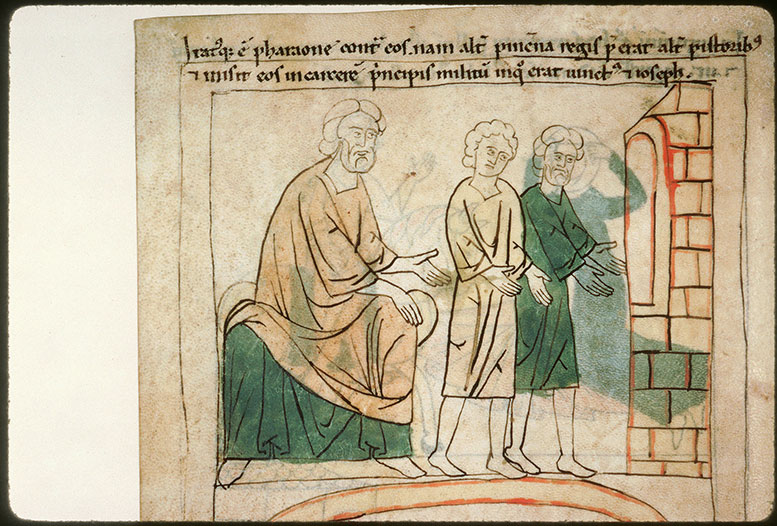 Iratꝰqꝫ ē pharaone contͣ eos. nam alt̄ pincͤna regis p̄erat alt̄ pistoribꝰ
⁊ misit eos in carcerē p̄ncipis militū inqͦ erat uinctꝰ ⁊ ioseph.